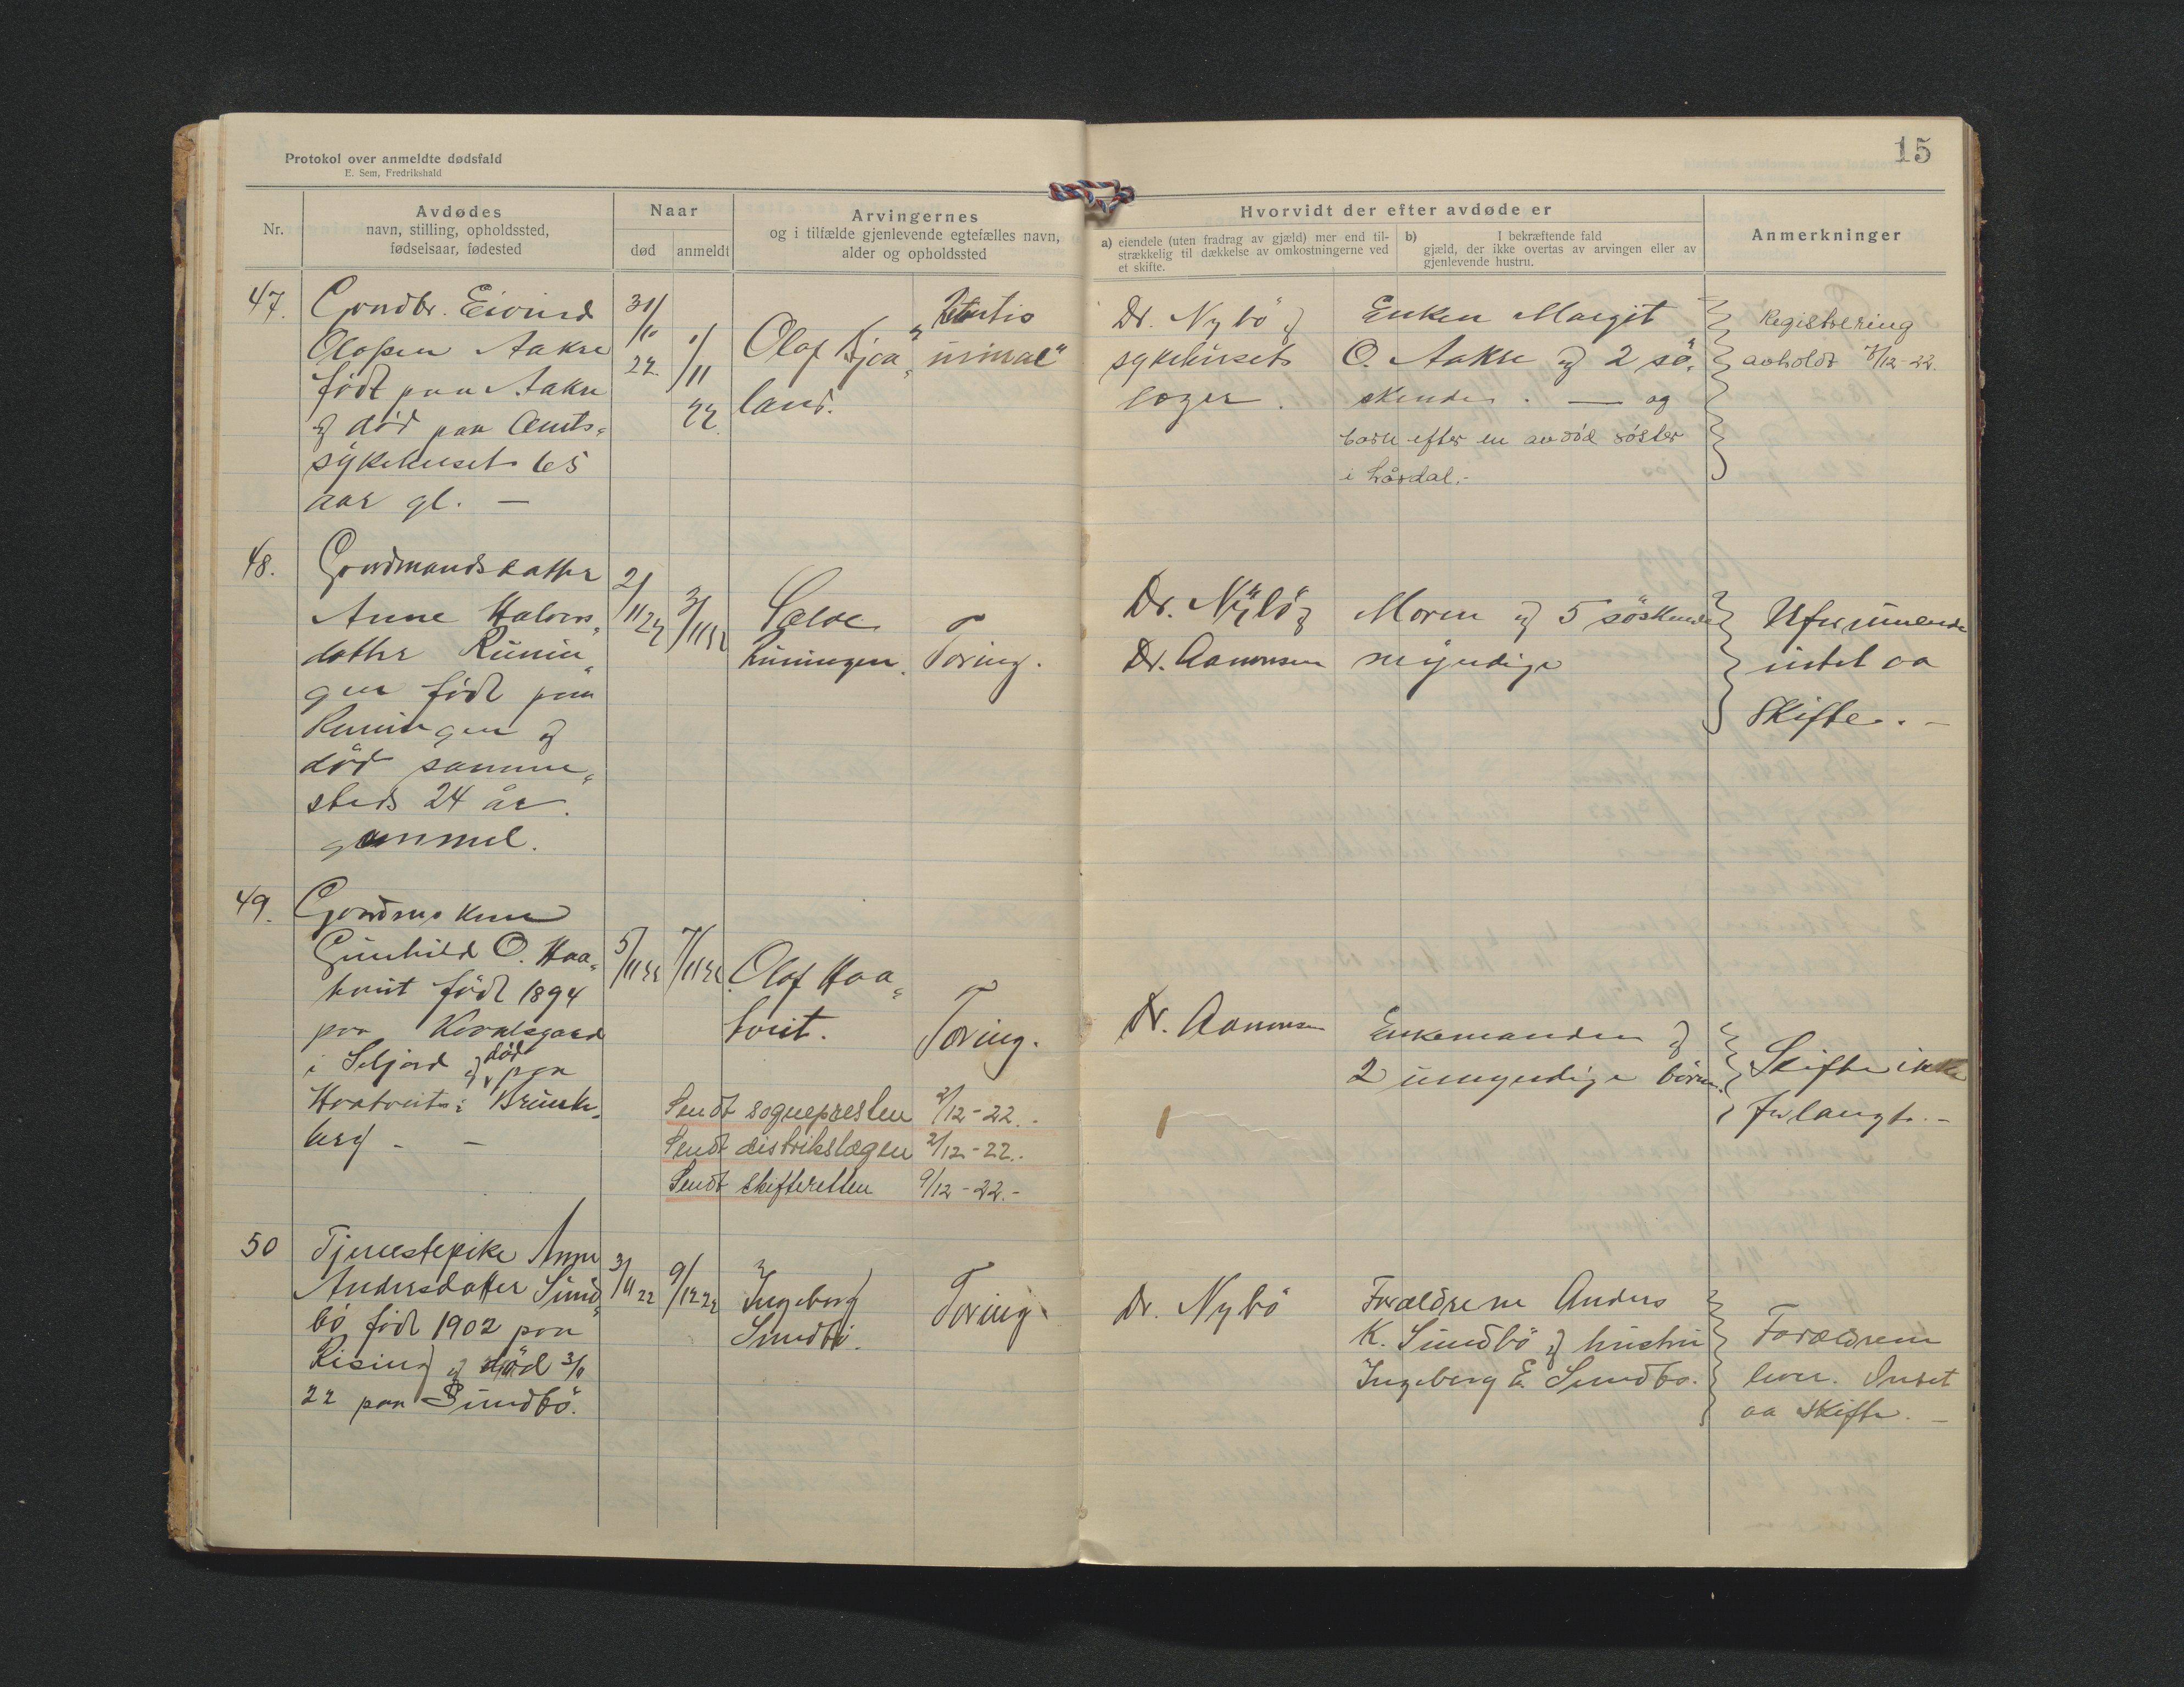 15
Protokol over anmeldte dødsfald
E. Sem, Fredrikshald
Nr.
Avdødes
navn, stilling, opholdssted,
fødselsaar, fødested
Naar
død
anmeldt
Arvingernes
og i tilfælde gjenlevende egtefælles navn,
alder og opholdssted
Hvorvidt der efter avdøde er
a) eiendele (uten fradrag av gjæld) mer end til-
strækkelig til dækkelse av omkostningerne ved
et skifte.
b) I bekræftende fald
gjæld, der ikke overtas av arvingen eller av
gjenlevende hustru.
Anmerkninger
47.
Gardbr. Eivind
Olafsen Aakre
født paa Aakre
og død paa Amts-
sykehuset 65
aar gl. —
31/10 22
1/11 22
Olaf Kjea-
land.
Dr. Nybö og
sykehusets
læger.
Enken Margit
O. Aakre og 2 sö-
skende. — og
barn efter en avdöd söster
i Lårdal.-
Registrering
avholdt 8/12-22.
48.
Gardmandsdatter
Anne Halvors-
datter Runin-
gen född paa
Runingen og
död samme-
steds 24 år
gammel.
2/11 22
3/11 22
Runingen.
Toring.
Dr. Nybö og
Dr. Aanonsen
Moren og 5 söskende
myndige
intet aa
skifte. —
49.
Gardmskone
Gunhild O. Haa-
tveit född 1894
paa
i Seljord og död paa
Haatveit i Brunk-
berg — —
5/11 22
7/11 22
Olaf Haa-
tveit.
Toring.
Dr. Aanonsen
Enkemanden og
2 umyndige börn.
Skifte ikke
forlangt. —
Sendt sognepresten 2/12-22.-
Sendt distrikslægen 2/12-22.-
Sendt skifteretten 9/12-22.-
50
Tjenestepike Anne
Andersdatter Sund-
bö född 1902 paa
Rising og död 3/11
22 paa Sundbö.
3/11 22
9/12 22
Ingeborg
Sundbö.
Toring.
Dr. Nybö
Forældrene Anders
K. Sundbö og hustru
Ingeborg E. Sundbö.
Forældrene
lever. Intet
aa skifte. —